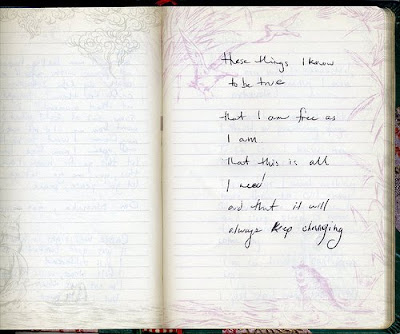 these things I know
to be true
that I am free as
I am
that this is all
I need
and that it will
always keep changing